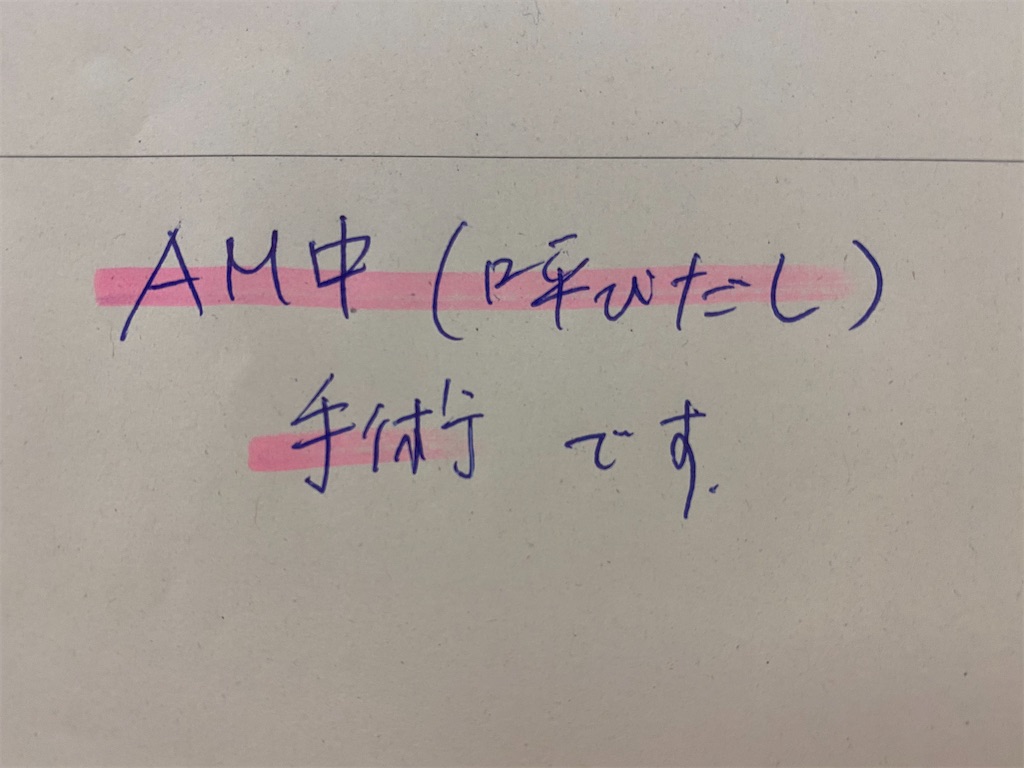 AM中(呼びたし)
手術です.